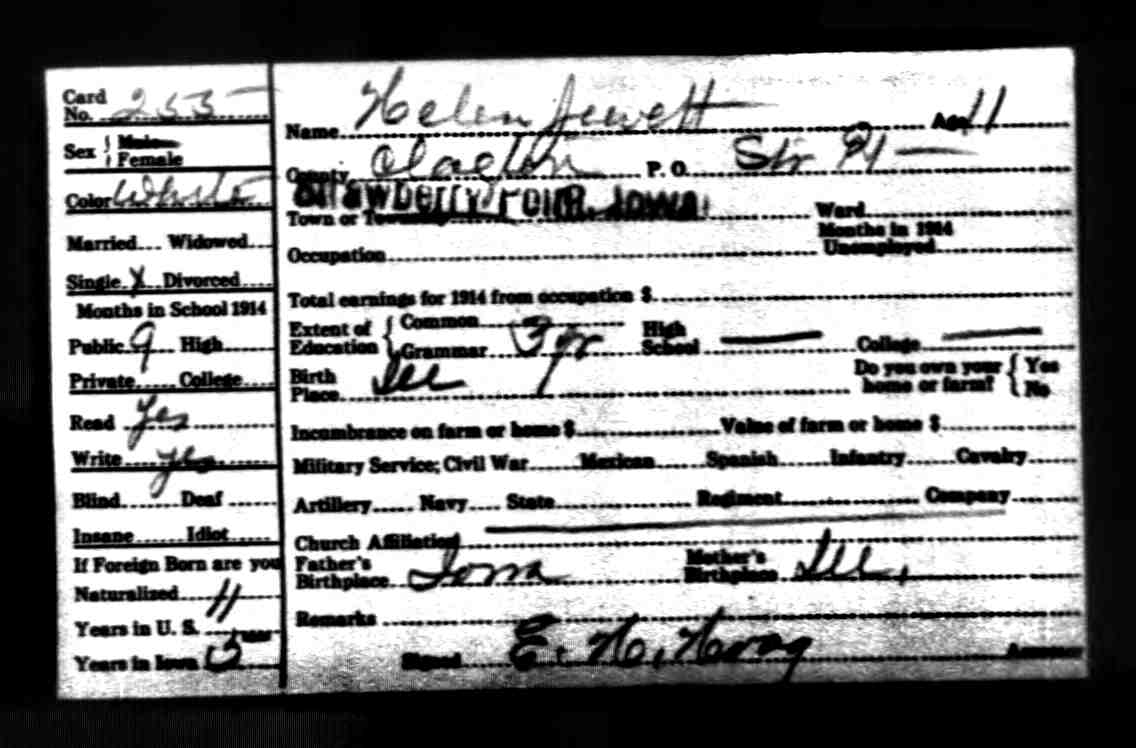 Card
No. 255
Sex { Male
Female
Color White
Married Widowed
Single X Divorced
Months in School 1914
Public 9 High
Private College
Read Yes
Write yes
Blind Deaf
Insane Idiot
If Foreign Born are you
Naturalized
Years in U. S. 11
Years in Iowa 5
Name Helen Jewett Age 11
County Clayton P. O. Str Pt
Strawberry Point, Iowa
Town or Township Ward
Occupation Months in 1914
Unemployed
Total earnings for 1914 from occupation $
Extent of { Common High
Education Grammar 3 yr School College
Birth Ill Do you own your { Yes
Place home or farm? No
Incumbrance on farm or home $ Value of farm or home $
Military Service; Civil War Mexican Spanish Infantry Cavalry
Artillery Navy State Regiment Company
Church Affiliation
Father's Mother's
Birthplace Iowa Birthplace Ill.
Remarks
Signed E. H. Hoag Assessor